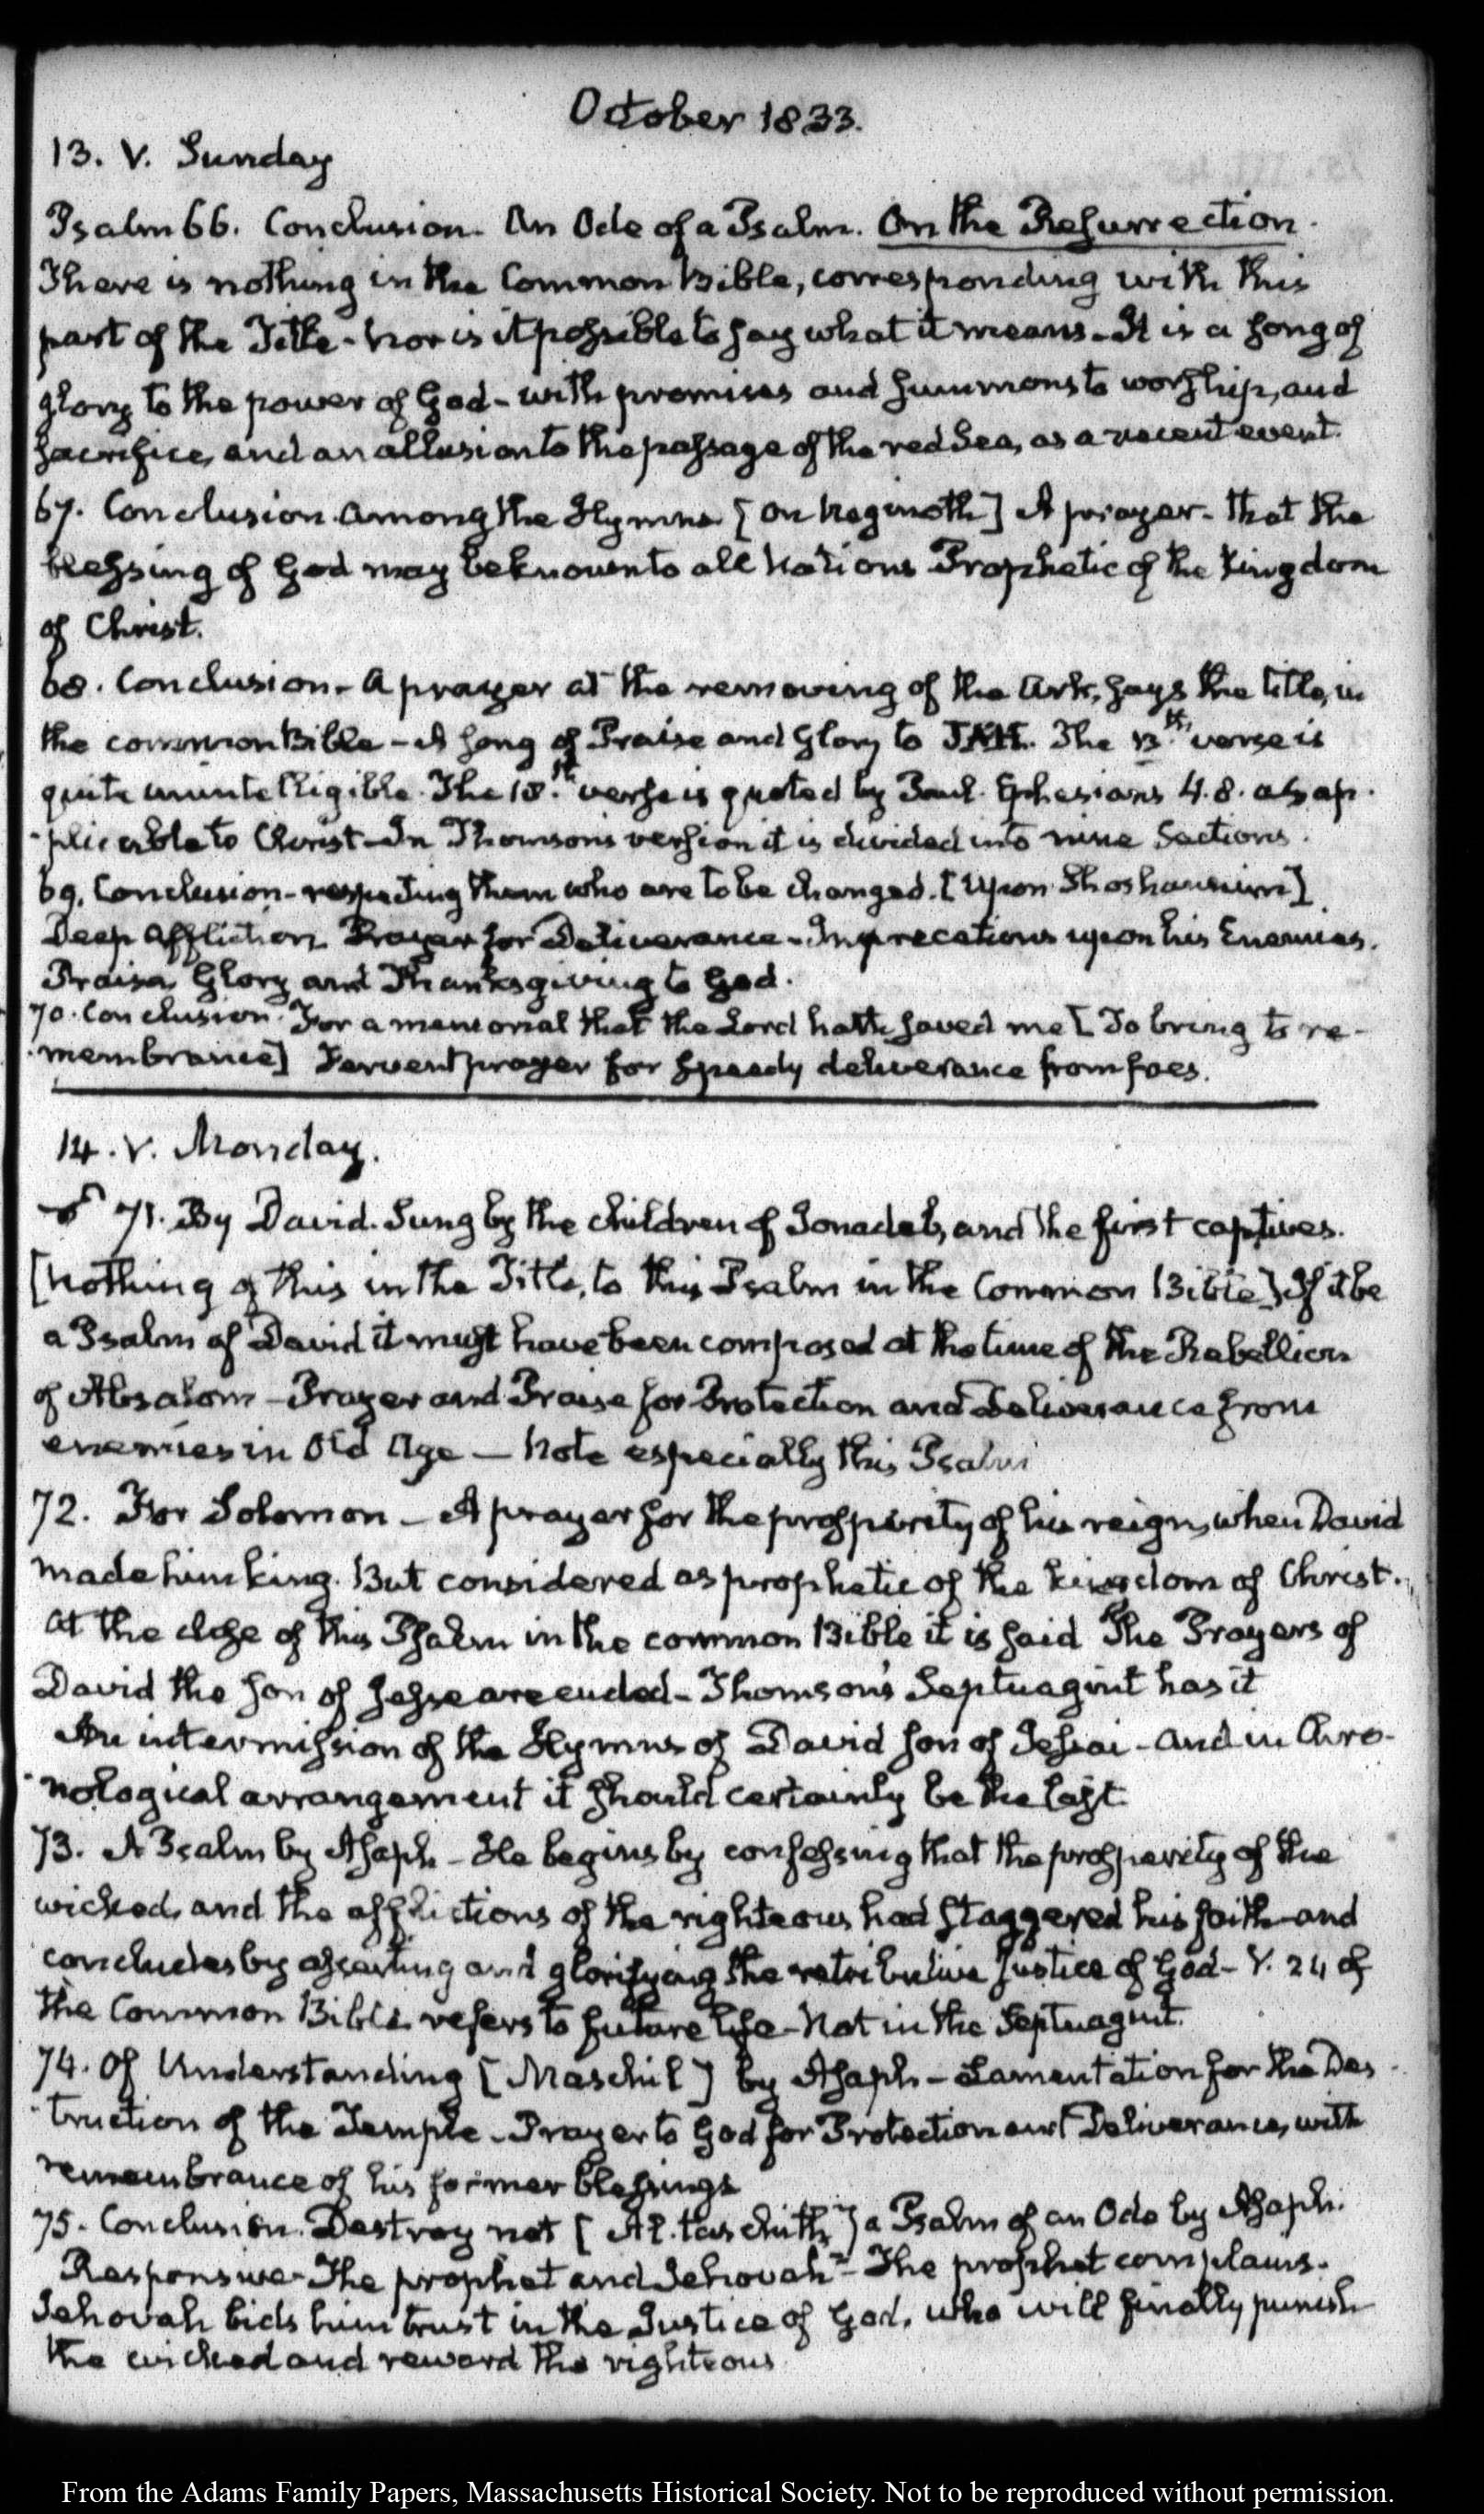 October 1833.
13. V. Sunday
Psalm 66. Conclusion. An Ode of a Psalm. On the Resurrection.
There is nothing in the Common Bible, corresponding with this
part of the Title - nor is it possible to say what it means - It is a song of
glory to the power of God - with promises and summons to worship, and
sacrifice, and an allusion to the passage of the red Sea, as a recent event.
67. Conclusion. Among the Hymns [on Neginoth] A prayer - that the
blessing of God may be known to all Nations Prophetic of the kingdom
of Christ.
68. Conclusion - A prayer at the removing of the Ark, says the title, in
the common Bible - A song of Praise and Glory to JAH. The 13.th verse is
quite unintelligible. The 18.th verse is quoted by Paul. Ephesians 4.8. as ap-
-plicable to Christ - In Thomson's version it is divided into nine Sections.
69. Conclusion - respecting them who are to be changed. [Upon Shoshannim]
Deep Affliction. Prayer for Deliverance - Imprecations upon his Enemies.
Praise, Glory and Thanksgiving to God.
70. Conclusion. For a memorial that the Lord hath saved me [To bring to re-
-membrance] Fervent prayer for speedy deliverance from foes.
14. V. Monday.
71. By David. Sung by the children of Jonadab, and the first captives.
[Nothing of this in the Title, to this Psalm in the Common Bible] If it be
a Psalm of David it must have been composed at the time of the Rebellion
of Absalom - Prayer and Praise for Protection and Deliverance from
enemies in Old Age - Note especially this Psalm
72. For Solomon - A prayer for the prosperity of his reign, when David
made him king. But considered as prophetic of the kingdom of Christ.
At the close of this Psalm in the common Bible it is said The Prayers of
David the son of Jesse are ended - Thomson's Septuagint has it
An intermission of the Hymns of David son of Jessai - and in Chro-
-nological arrangement it should certainly be the last
73. A Psalm by Asaph - He begins by confessing that the prosperity of the
wicked, and the afflictions of the righteous had staggered his faith - and
concludes by asserting and glorifying the retributive justice of God - V. 24 of
the Common Bible refers to future life - Not in the Septuagint.
74. Of Understanding [Maschil] by Asaph - Lamentation for the Des-
-truction of the Temple - Prayer to God for Protection and Deliverance, with
remembrance of his former blessings
75. Conclusion. Destroy not [Al-taschith] a Psalm of an Ode by Asaph.
Responsive - The prophet and Jehovah - The prophet complains.
Jehovah bids him trust in the Justice of God, who will finally punish
the wicked and reward the righteous
From the Adams Family Papers, Massachusetts Historical Society. Not to be reproduced without permission.